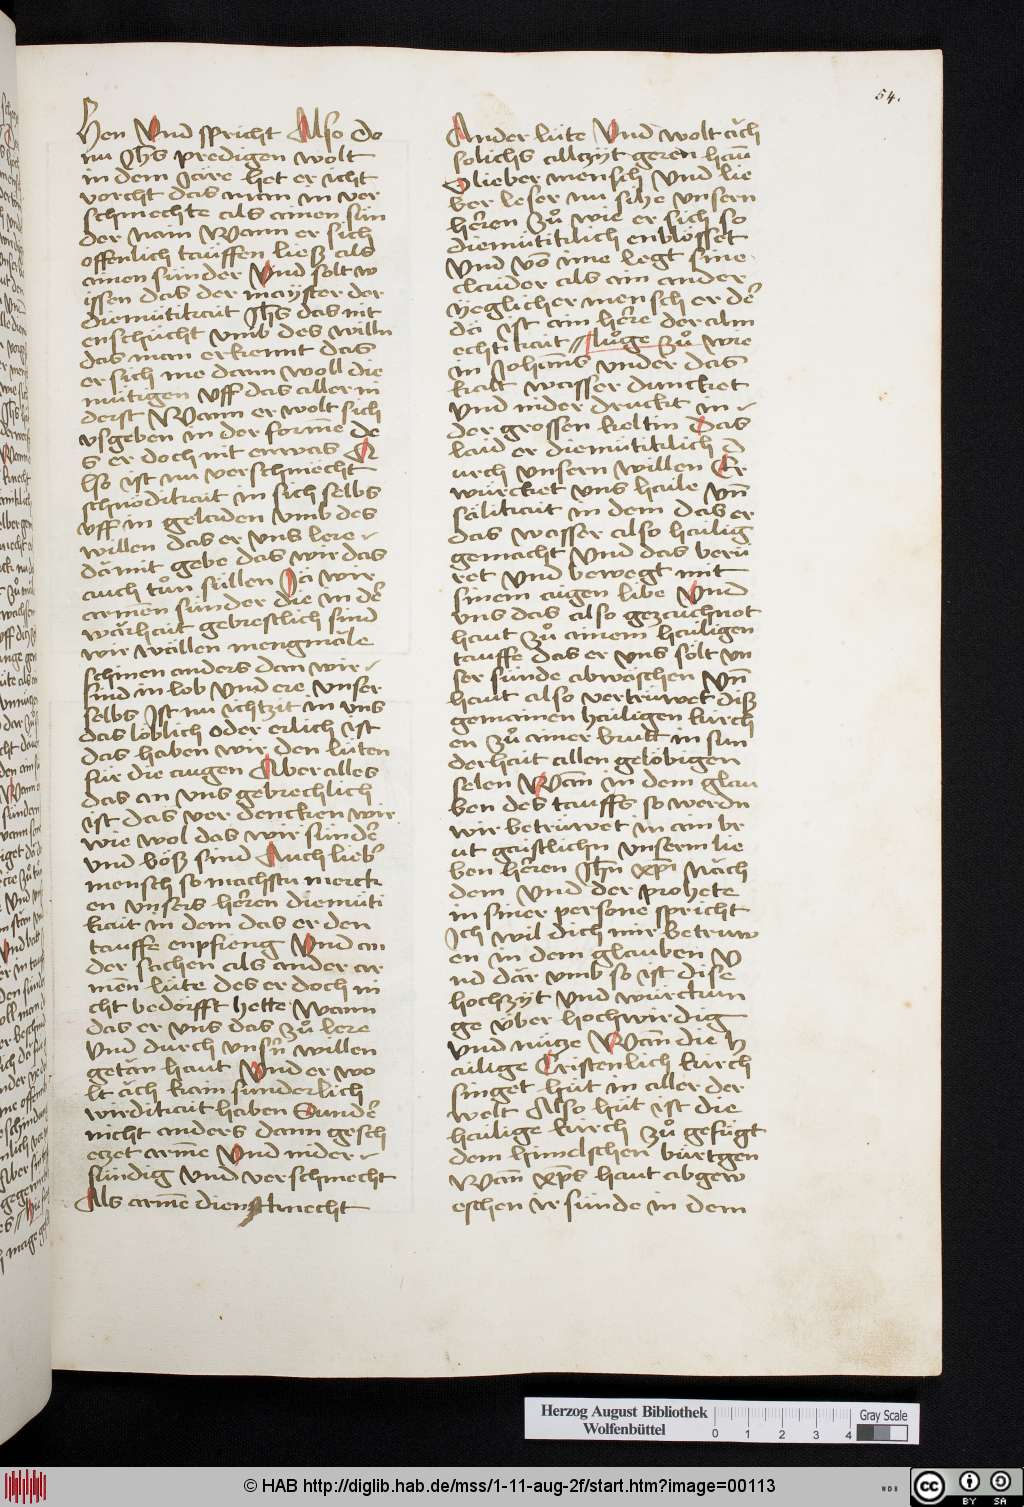 54.
hen Vnd spricht Also do
nu Jhs predigen wolt
in dem Jare het er icht
vorcht das man in ver
schmechte als ainen sün
der nain Wann er sich
offenlich tauffen ließ als
ainen sünder Vnd solt w
issen das der mayster der
diemütikait Jhs das nit
enschücht vmb des willn
das man erkennt das
er sich nie dann woll die
mütigen vff das aller in
derst Wann er wolt sich
vsgeben in der forme de
s er doch nit enwas A
lso ist nu verschmecht
schnöditkait in sich selbs
vff in geladen vmb des
willen das er vns lere
damit gebe das wir das
auch tůn süllen Jā wir
armen sünder die in der
wārhait gebrestlich sind
wir wällen mengmāle
schinen anders dan wir
sind in lob Vnd ere vnser
selbs Jst nu ichtzit in vns
das löblich oder erlich ist
das haben wir den lüten
für die augen Aber alles
das an vns gebrechlich
ist das ver dencken wir
wie wol das wir sünder
vnd böß sind Auch lieber
mensch so machstu merck
en vnsers herren diemüti
kait in dem das er den
tauffe enpfieng Vnd an
der sachen als ander ar
men lüte des er doch ni
cht bedörfft hette Wann
das er vns das zů lere
Vnd durch vnsrn willen
getān haut Vnd er wo
lt āch kain sunderlich
wirditkait haben Sunder
nicht anders dann gesch
etzet arme Vnd nider
sündig vnd verschmecht
Als arme dienstknecht
Ander lüte Vnd wolt āch
solichs allzyt geren haū
O lieber mensch Vnd lie
ber leser nu sihe vnsern
herren zů wie er sich so
diemütiklich enblösset
Vnd vō ime legt sine
claider als ain ander
yeglicher mensch er der
da ist ain herre der alm
echtikait // Luge zů wie
in Johannes vnder das
kalt wasser duncket
vnd nider druckt in
der grossen keltin Das
laid er diemütiklich d
urch vnsern willen Er
würcket vns haile vnd
sālitkait in dem das er
das wasser also hailig
gemacht Vnd das berü
ret Vnd bewegt mit
sinem aigen libe Vnd
vns das also gezaichnot
haut zů ainem hailigen
tauffe das er vns sölt vn
ser sünde abwäschen vnd
haut also vertrüwet diß
gemainen hailigen kirch
en zů ainer brutt in sun
derhait allen gelöbigen
selen Wann in dem glau
ben des tauffs so werdn
wir betrüwet in ain br
ut gaistlichn vnserm lie
ben herren Jhn xpi Nāch
dem Vnd der prohete
in siner persone spricht
Ich wil dich mir betruw
en in dem glauben V
nd dār vmb so ist dise
hochzyt Vnd würckun
ge über hochwirdig
vnd nütze Wann die h
ailige Cristenlich kirch
singet hüt in aller der
welt Also hüt ist die
hailige kirch zů gefügt
dem himelschen bürtgen
Wann xps haut abgew
eschen ir sünde in dem
Herzog August Bibliothek
Wolfenbüttel
0 1 2 3 4
Gray Scale
© HAB http://diglib.hab.de/mss/1-11-aug-2f/start.htm?image=00113
WDB
cc BY SA